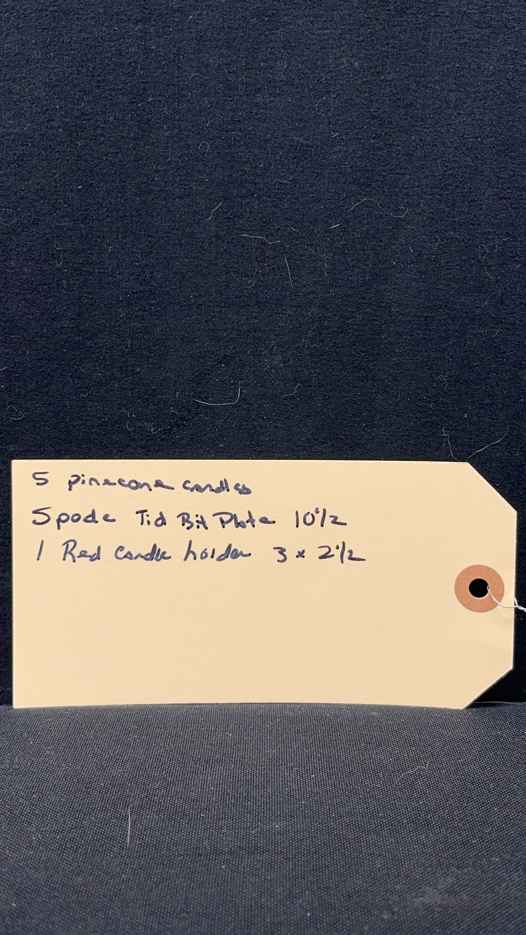 5 pinecone candles
Spode Tid Bit Plate 10 1/2
1 Red Candle holder 3 x 2 1/2